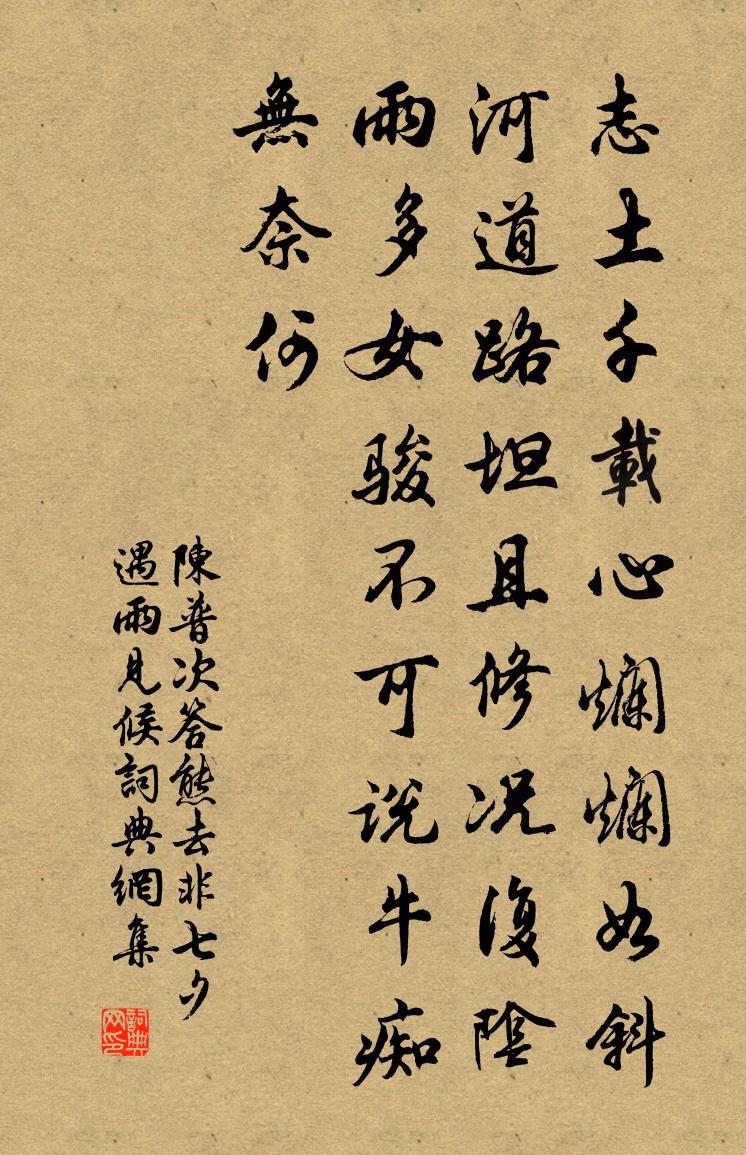 志士千載心爛爛如斜
河道路坦且修况復陰
雨多女骏不可说牛痴
無奈何
陳普次答熊去非七夕
遇雨見候詞典網集
詞典
网印